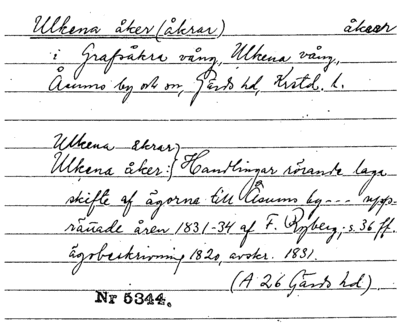 Ulkena åker (åkrar) åkrar
i Grafsåkra vång, Ulkena vång,
Åsums by och sn, Gärds hd, Krstd. l.
Ulkena åkrar
Ulkena åker: } Handlingar rörande laga
skifte af ägorne till Åsums by --- upps-
rättade åren 1831-34 af F. Ryberg, s. 36 ff.
ägobeskrivning 1820, avskr. 1831.
(A 26 Gärds hd)
Nr 5344.